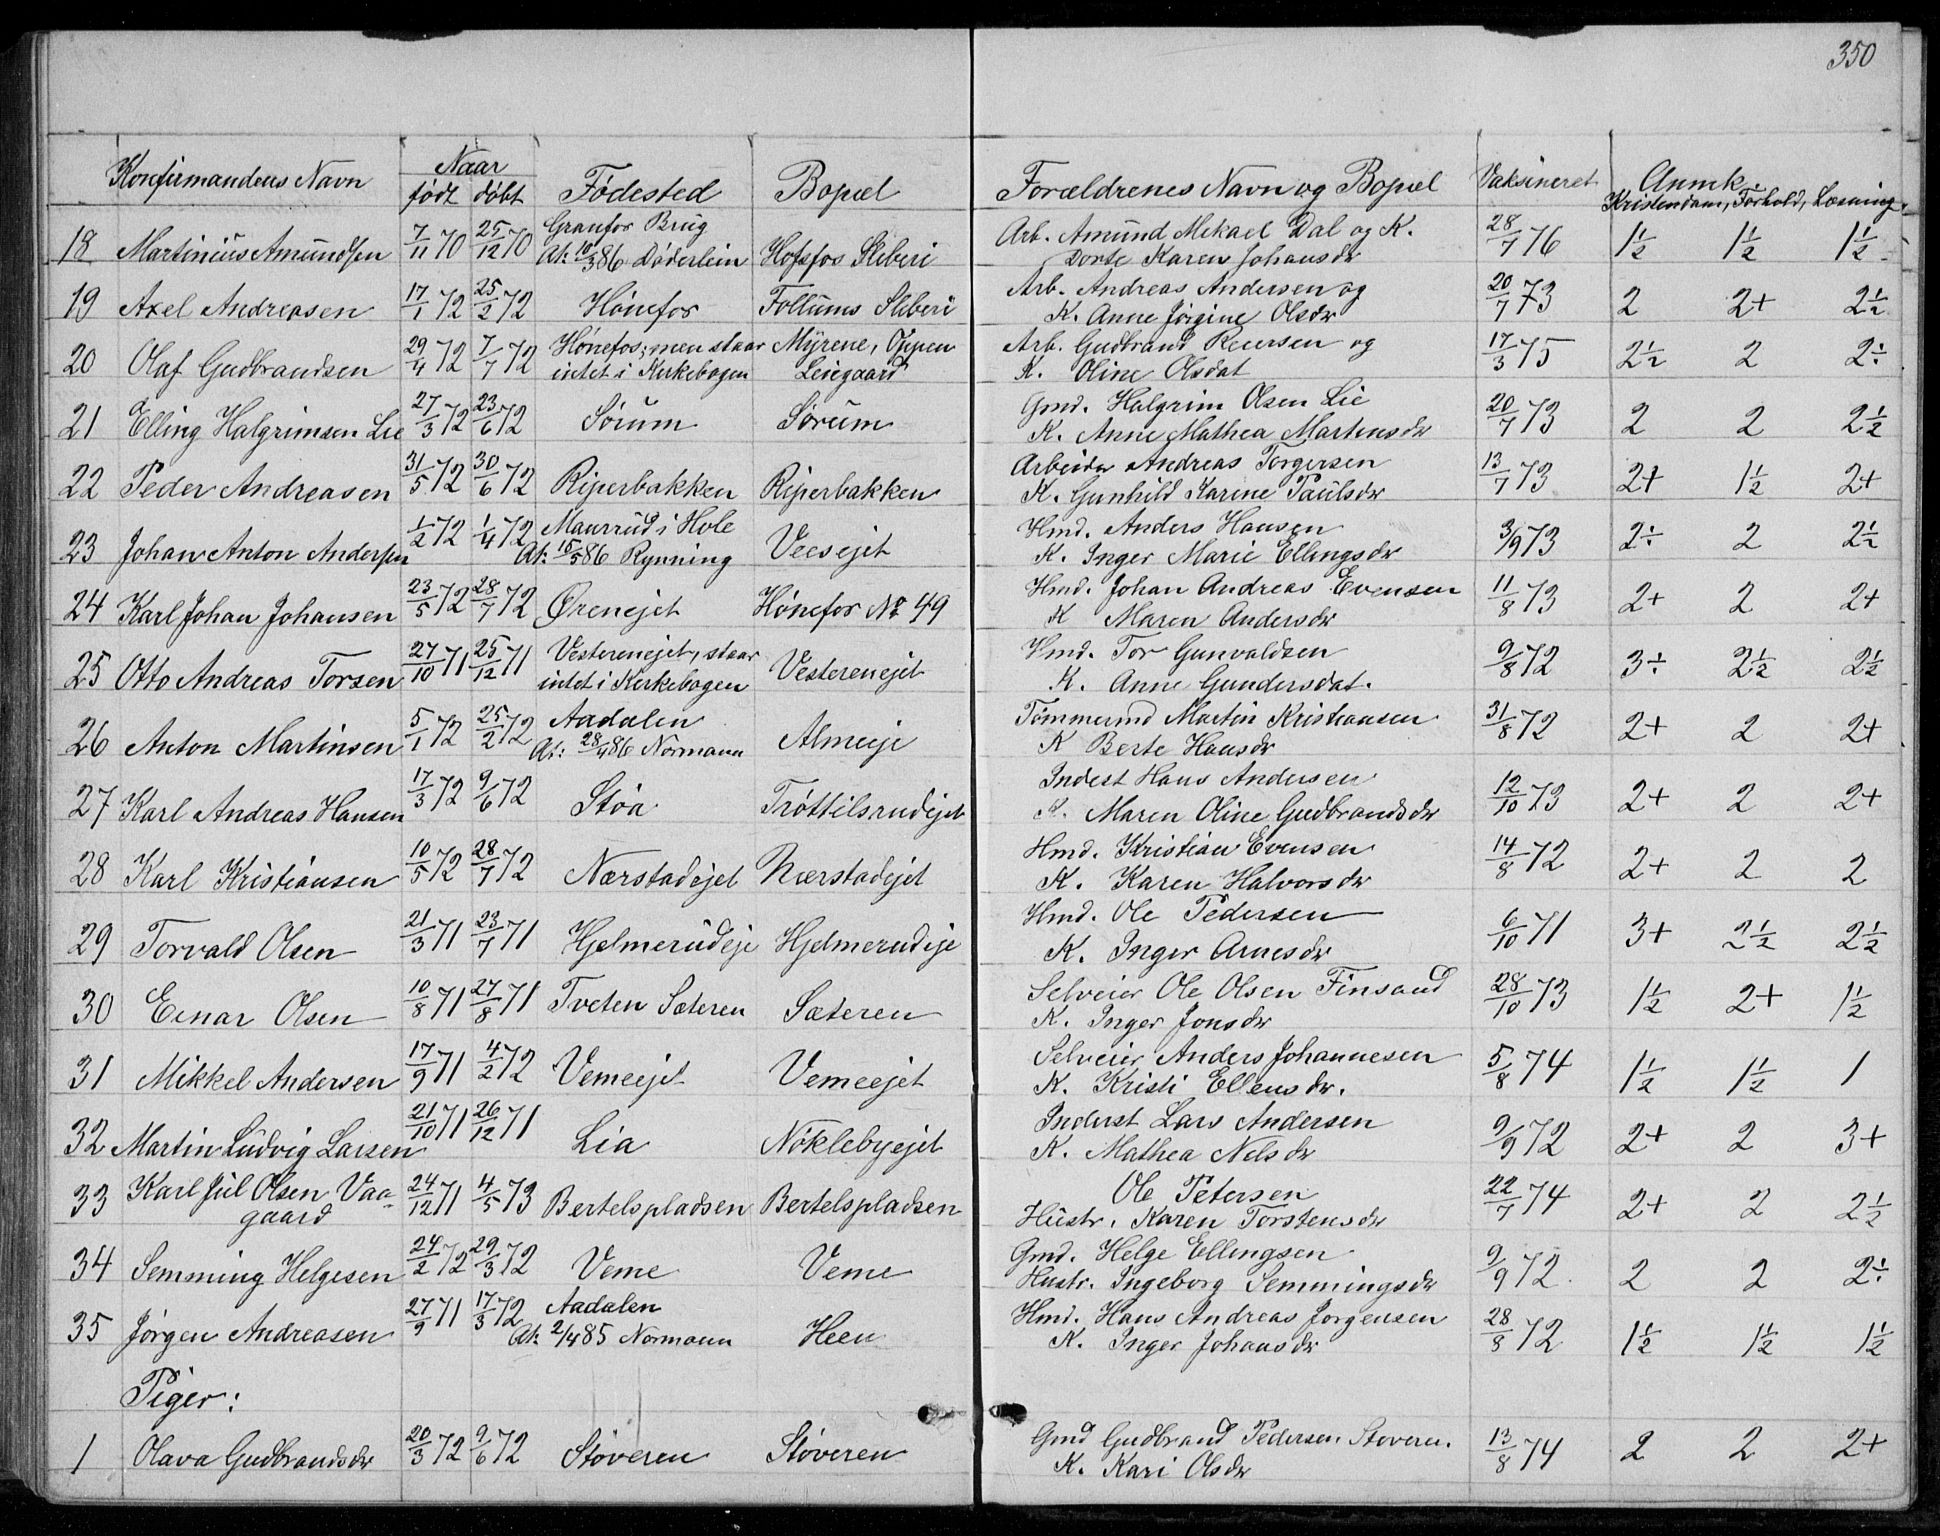 350
Konfirmandens Navn | Naar født døbt | Fødested | Bopæl | Forældrenes Navn og Bopæl | Vaksineret | Anmk. Kristendom, Forhold, Læsning.
18 Martinius Amundsen 7/11 70 25/12 70 Granfos Brug At: 10/3 86 Døderlein Hofsfos Sliberi Arb. Amund Mikael Dal og K. Dorte Karen Johansdr 28/7 76 1½ 1½ 1½
19 Axel Andreasen 17/1 72 25/2 72 Hønefos Follums Sliberi Arb. Andreas Andersen og K. Anne Jørgine Olsdr 20/7 73 2 2+ 2½
20 Olaf Gudbrandsen 29/4 72 7/7 72 Hønefos; men staar intet i Kirkebogen Myrene, Oppen Leiegaard Arb. Gudbrand Reiersen og K. Oline Olsdat 17/3 75 2½ 2 2÷
21 Elling Halgrimsen Lie 27/3 72 23/6 72 Sørum Sørum Gmd. Halgrim Olsen Lie K. Anne Mathea Martinsdr 20/7 73 2 2 2½
22 Peder Andreasen 31/5 72 30/6 72 Riperbakken Riperbakken Arbeider Andreas Torgersen K. Gunhild Karine Paulsdr 13/7 73 2+ 1½ 2+
23 Johan Anton Andersen 1/2 72 1/4 72 Maurrud i Hole At: 15/5 86 Rynning Veesejet Hmd. Anders Hansen K. Inger Marie Ellingsdr 3/9 73 2÷ 2 2½
24 Karl Johan Johansen 23/5 72 28/7 72 Ørenejet Hønefos No 49 Hmd. Johan Andreas Evensen K Maren Andersdr 11/8 73 2+ 2 2+
25 Otto Andreas Torsen 27/10 71 25/12 71 Vesterenejet, staar intet i Kirkebogen Vesterenejet Hmd. Tor Gunvaldsen K. Anne Gundersdat. 9/8 72 3÷ 2½ 2½
26 Anton Martinsen 5/1 72 25/2 72 Aadalen At: 28/4 86 Normann Almeije Tømmermd Martin Kristiansen K Berte Hansdr 31/8 72 2+ 2 2+
27 Karl Andreas Hansen 17/3 72 9/6 72 Støa Trøttilsrudejet Inderst Hans Andersen K. Maren Oline Gudbrandsdr 12/10 73 2+ 2 2+
28 Karl Kristiansen 10/5 72 28/7 72 Nærstadejet Nærstadejet Hmd. Kristian Evensen K. Karen Halvorsdr 14/8 72 2+ 2 2
29 Torvald Olsen 21/3 71 23/7 71 Hjelmerudeje Hjelmerudeje Hmd. Ole Pedersen K. Inger Arnesdr 6/10 71 3+ 2½ 2½
30 Einar Olsen 10/8 71 27/8 71 Tveten Sæteren Sæteren Selveier Ole Olsen Finsand K. Inger Jonsdr 28/10 73 1½ 2+ 1½
31 Mikkel Andersen 17/9 71 4/2 72 Vemeejet Vemeejet Selveier Anders Johannesen K. Kristi Ellensdr. 5/8 74 1½ 1½ 1
32 Martin Ludvig Larsen 21/10 71 26/12 71 Lia Nøklebyejet Inderst Lars Andersen K. Mathea Nelsdr 9/9 72 2+ 2 3+
33 Karl Jul Olsen Vaagaard 24/12 71 4/5 73 Bertelspladsen Bertelspladsen Ole Petersen Hustr. Karen Torstensdr 22/7 74 2+ 2 2½
34 Semming Helgesen 24/2 72 29/3 72 Veme Veme Gmd. Helge Ellingsen Hustr. Ingeborg Semmingsdr 9/9 72. 2 2 2÷
35 Jørgen Andreasen 27/9 71 17/3 72 Aadalen At: 2/4 85 Normann Heen Hmd. Hans Andreas Jørgensen K. Inger Johansdr 28/8 72 1½ 1½ 1½
Piger:
1 Olava Gudbrandsdr 20/3 72 9/6 72 Støveren Støveren Gmd Gudbrand Pedersen Støveren. K. Kari Olsdr 13/8 74 2 2 2+